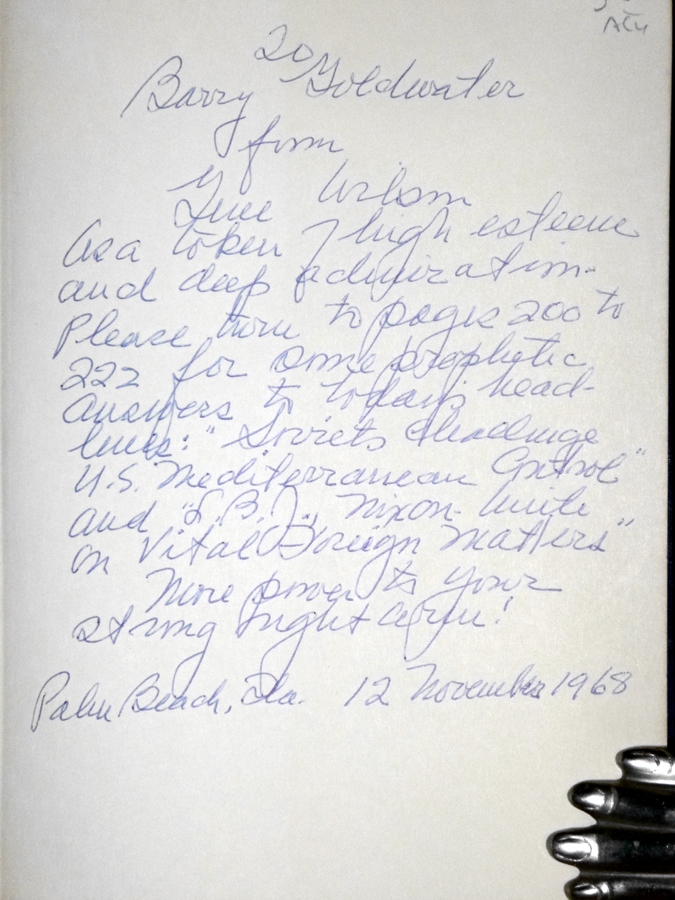 To
Barry Goldwater
from
Gene Wilson
As a token of high esteem
and deep admiration.
Please turn to pages 200 to
222 for some prophetic
answers to todays head-
lines: "Soviets Challenge
U.S. Mediterranean Control"
and "L.B.J., Nixon Unite
on Vital Foreign Matters"
More power to your
strong right arm!
Palm Beach, Fla. 12 November 1968